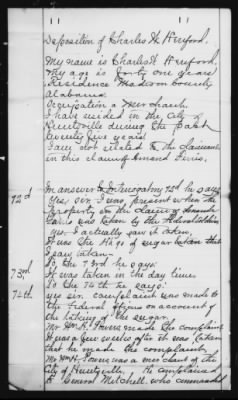 Deposition of Charles H. Hereford.
My name is Charles H Hereford.
My age is forty one years
Residence Madison County
Alabama
Occupation a Merchant.
I have resided in the City of
Huntsville during the past
twenty five years
I am not related to the claimant
in this claim of
72d In answer to Interrogatory 72d he says
Yes, sir. I was present when the
property in the claim of
was taken by the Federal Soldiers
yes. I actually saw it taken,
It was the Hhgs of sugar taken that
I saw taken—
73rd To the 73rd he says:
It was taken in the day time.
74th To the 74th he says:
yes sir. complaint was made to
the Federal officers on account of
the taking of the sugar.
Mr. Wm H. Powers made the complaint
It was a few weeks after it was taken
that he made the complaint,
Mr. Wm H. Powers was a merchant of the
City of Huntsville. He complained
to General Mitchell who commanded